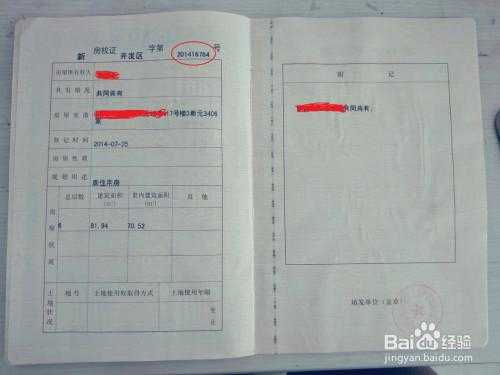 房权证 字第 号
新 开发区 201416764
房屋所有权人
共有情况 共同共有
房屋坐落 17号楼3单元3406
室
登记时间 2014-07-25
房屋性质
规划用途 居住用房
总层数 建筑面积 套内建筑面积 其他
(m²) (m²)
房屋状况 6 81.94 70.52
土地状况 地号 土地使用权取得方式 土地使用年限
至 止
附 记
共同共有。
填发单位（盖章）
Baidu经验
jingyan.baidu.com